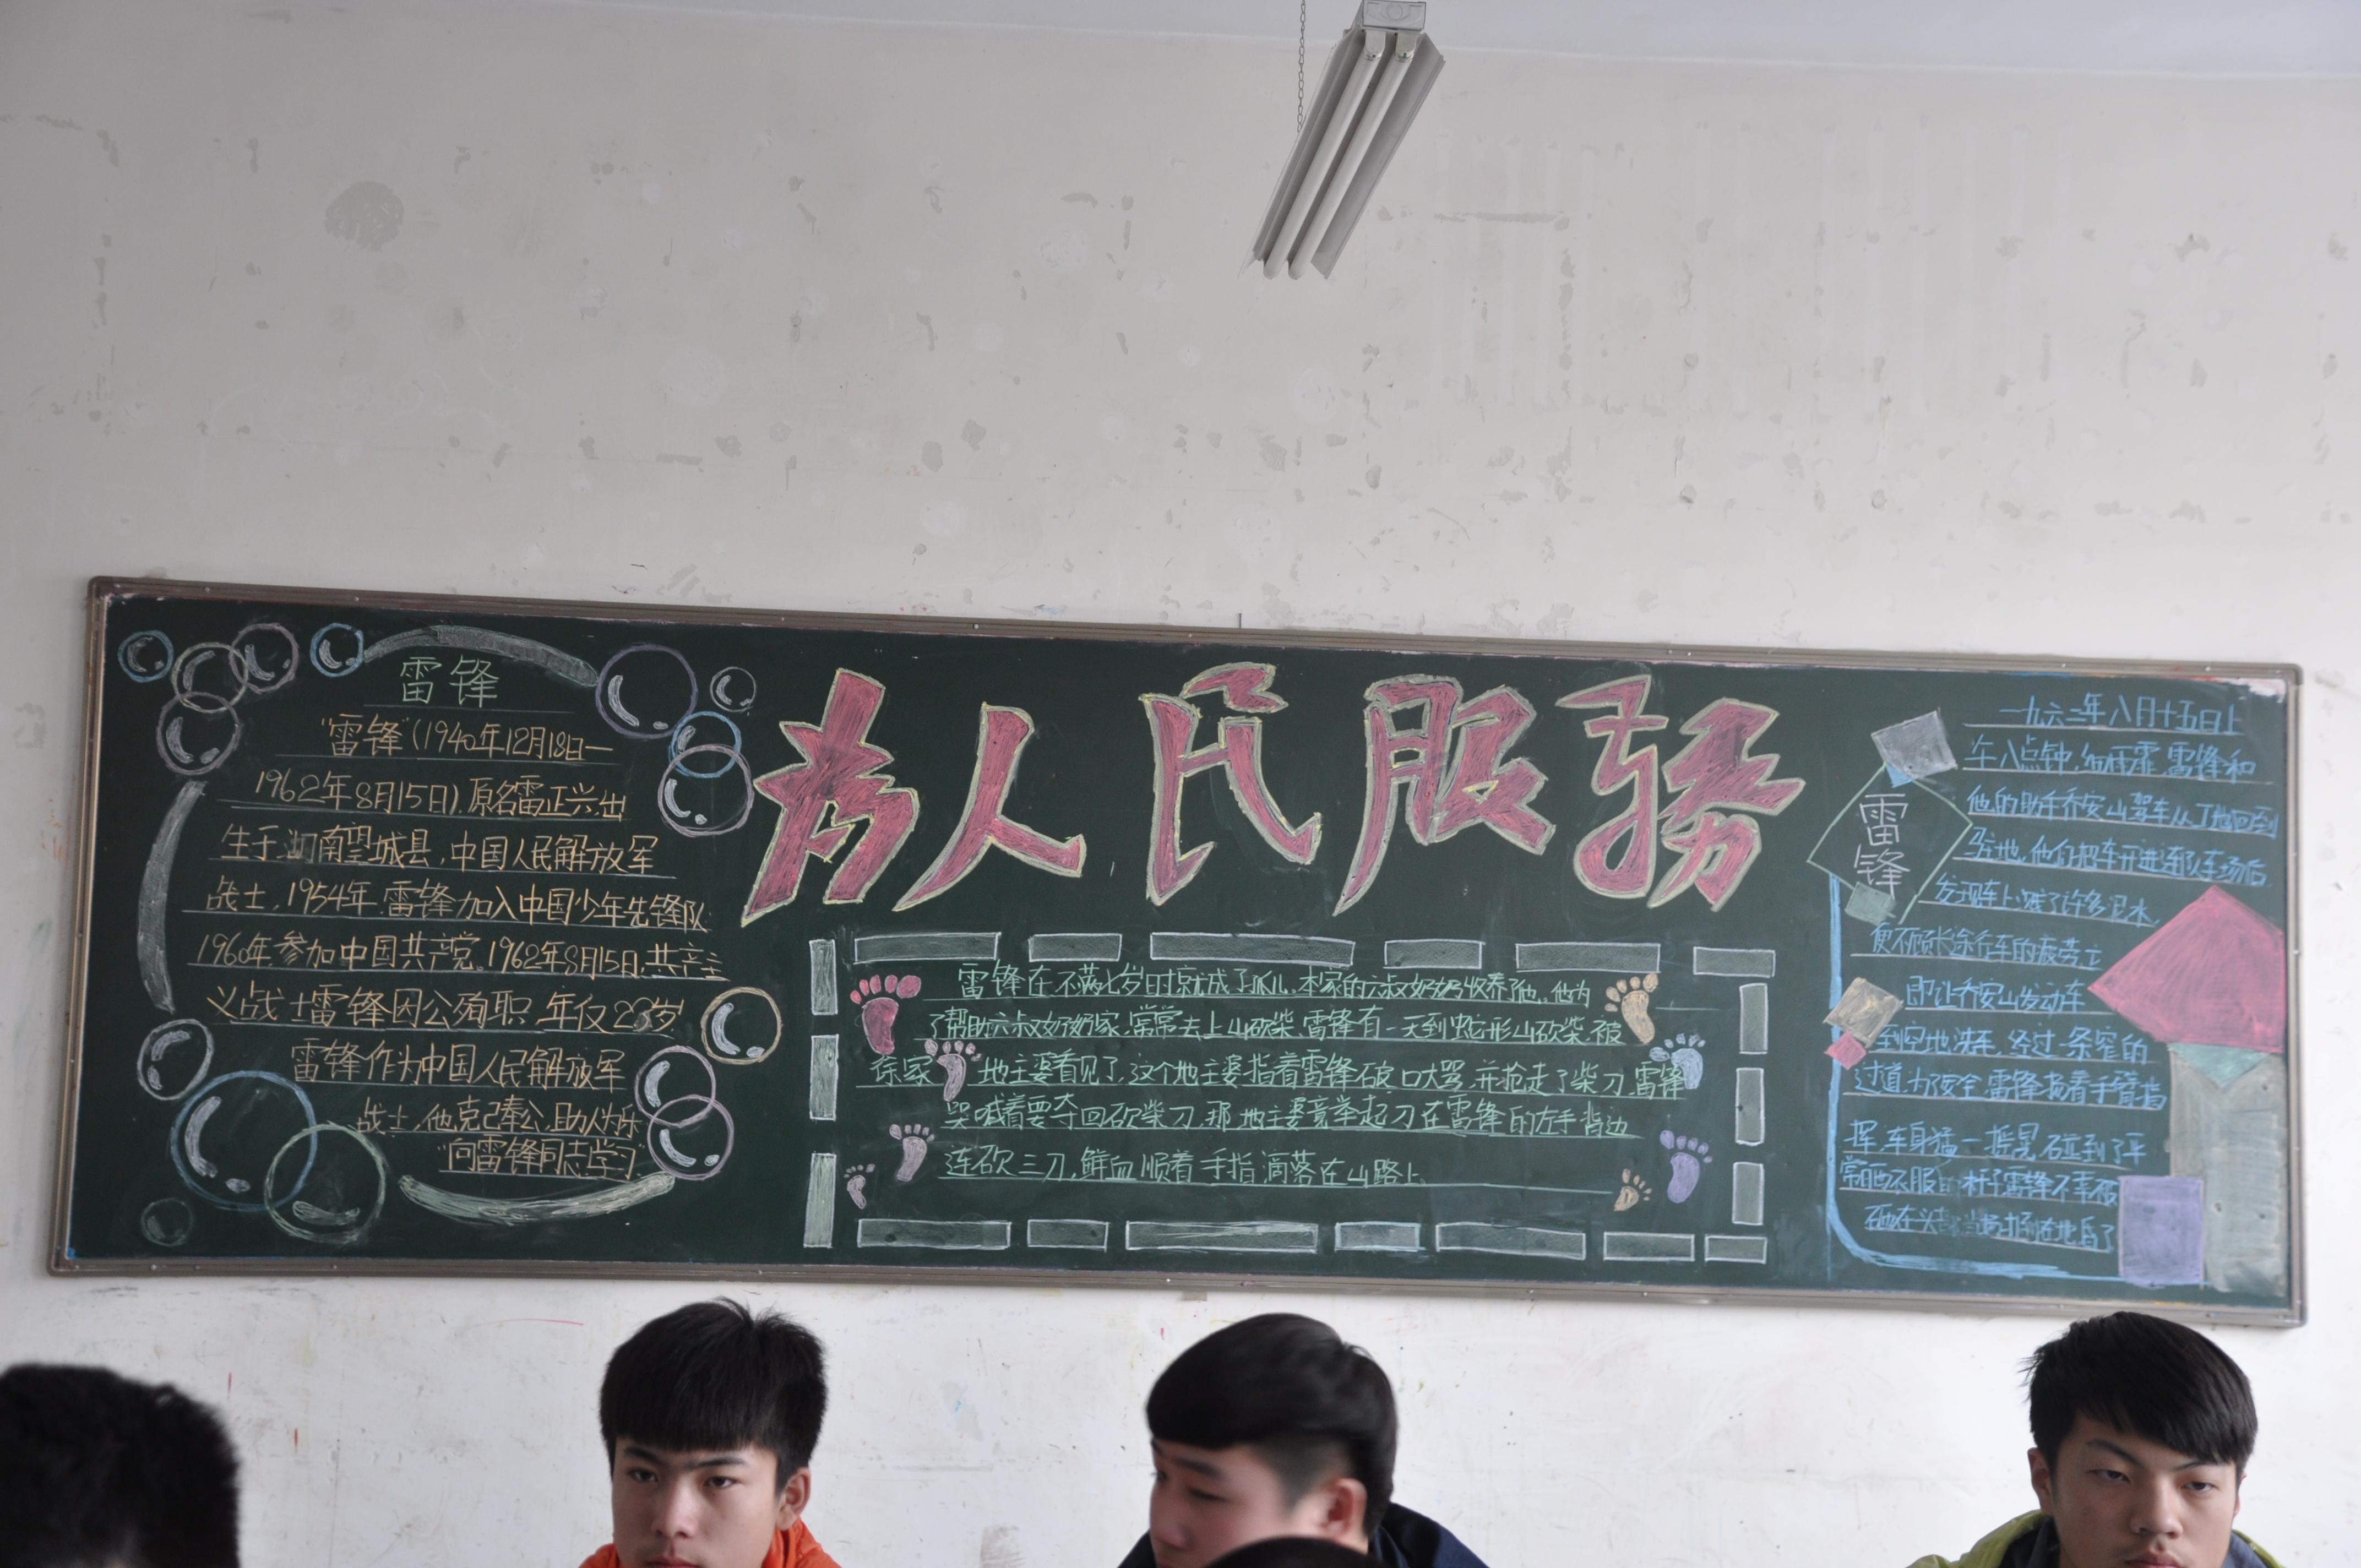 雷锋
"雷锋"(1940年12月18日—
1962年8月15日),原名雷正兴,出
生于湖南望城县,中国人民解放军
战士,1954年,雷锋加入中国少年先锋队
1960年,参加中国共产党。1962年8月15日,共产主
义战士雷锋因公殉职,年仅23岁
雷锋作为中国人民解放军
战士,他克己奉公,助人为乐
"向雷锋同志学习"
为人民服务
雷锋在不满七岁时就成了孤儿,本家的六叔奶奶收养了他。他为
了帮助六叔奶奶家,常常去上山砍柴,雷锋有一天到蛇形山砍柴,被
徐家地主婆看见了,这个地主婆指着雷锋破口大骂,并抢走了柴刀,雷锋
哭喊着要夺回砍柴刀,那地主婆竟举起刀在雷锋的左手背边
连砍三刀,鲜血顺着手指滴落在山路上。
雷锋
一九六二年八月十五日上
午八点钟,细雨霏,雷锋和
他的助手乔安山驾车从工地回到
驻地,他们把车开进连队车场后,
发现车上溅了许多泥水,
便不顾长途行车的疲劳立
即让乔安山发动车
到空地洗车,经过一条窄的
过道,为了安全,雷锋扬着手臂指
挥,车身猛一摇晃,碰到了平
常晒衣服的杆子雷锋不幸被
砸在头部,当场扑倒在地,昏了